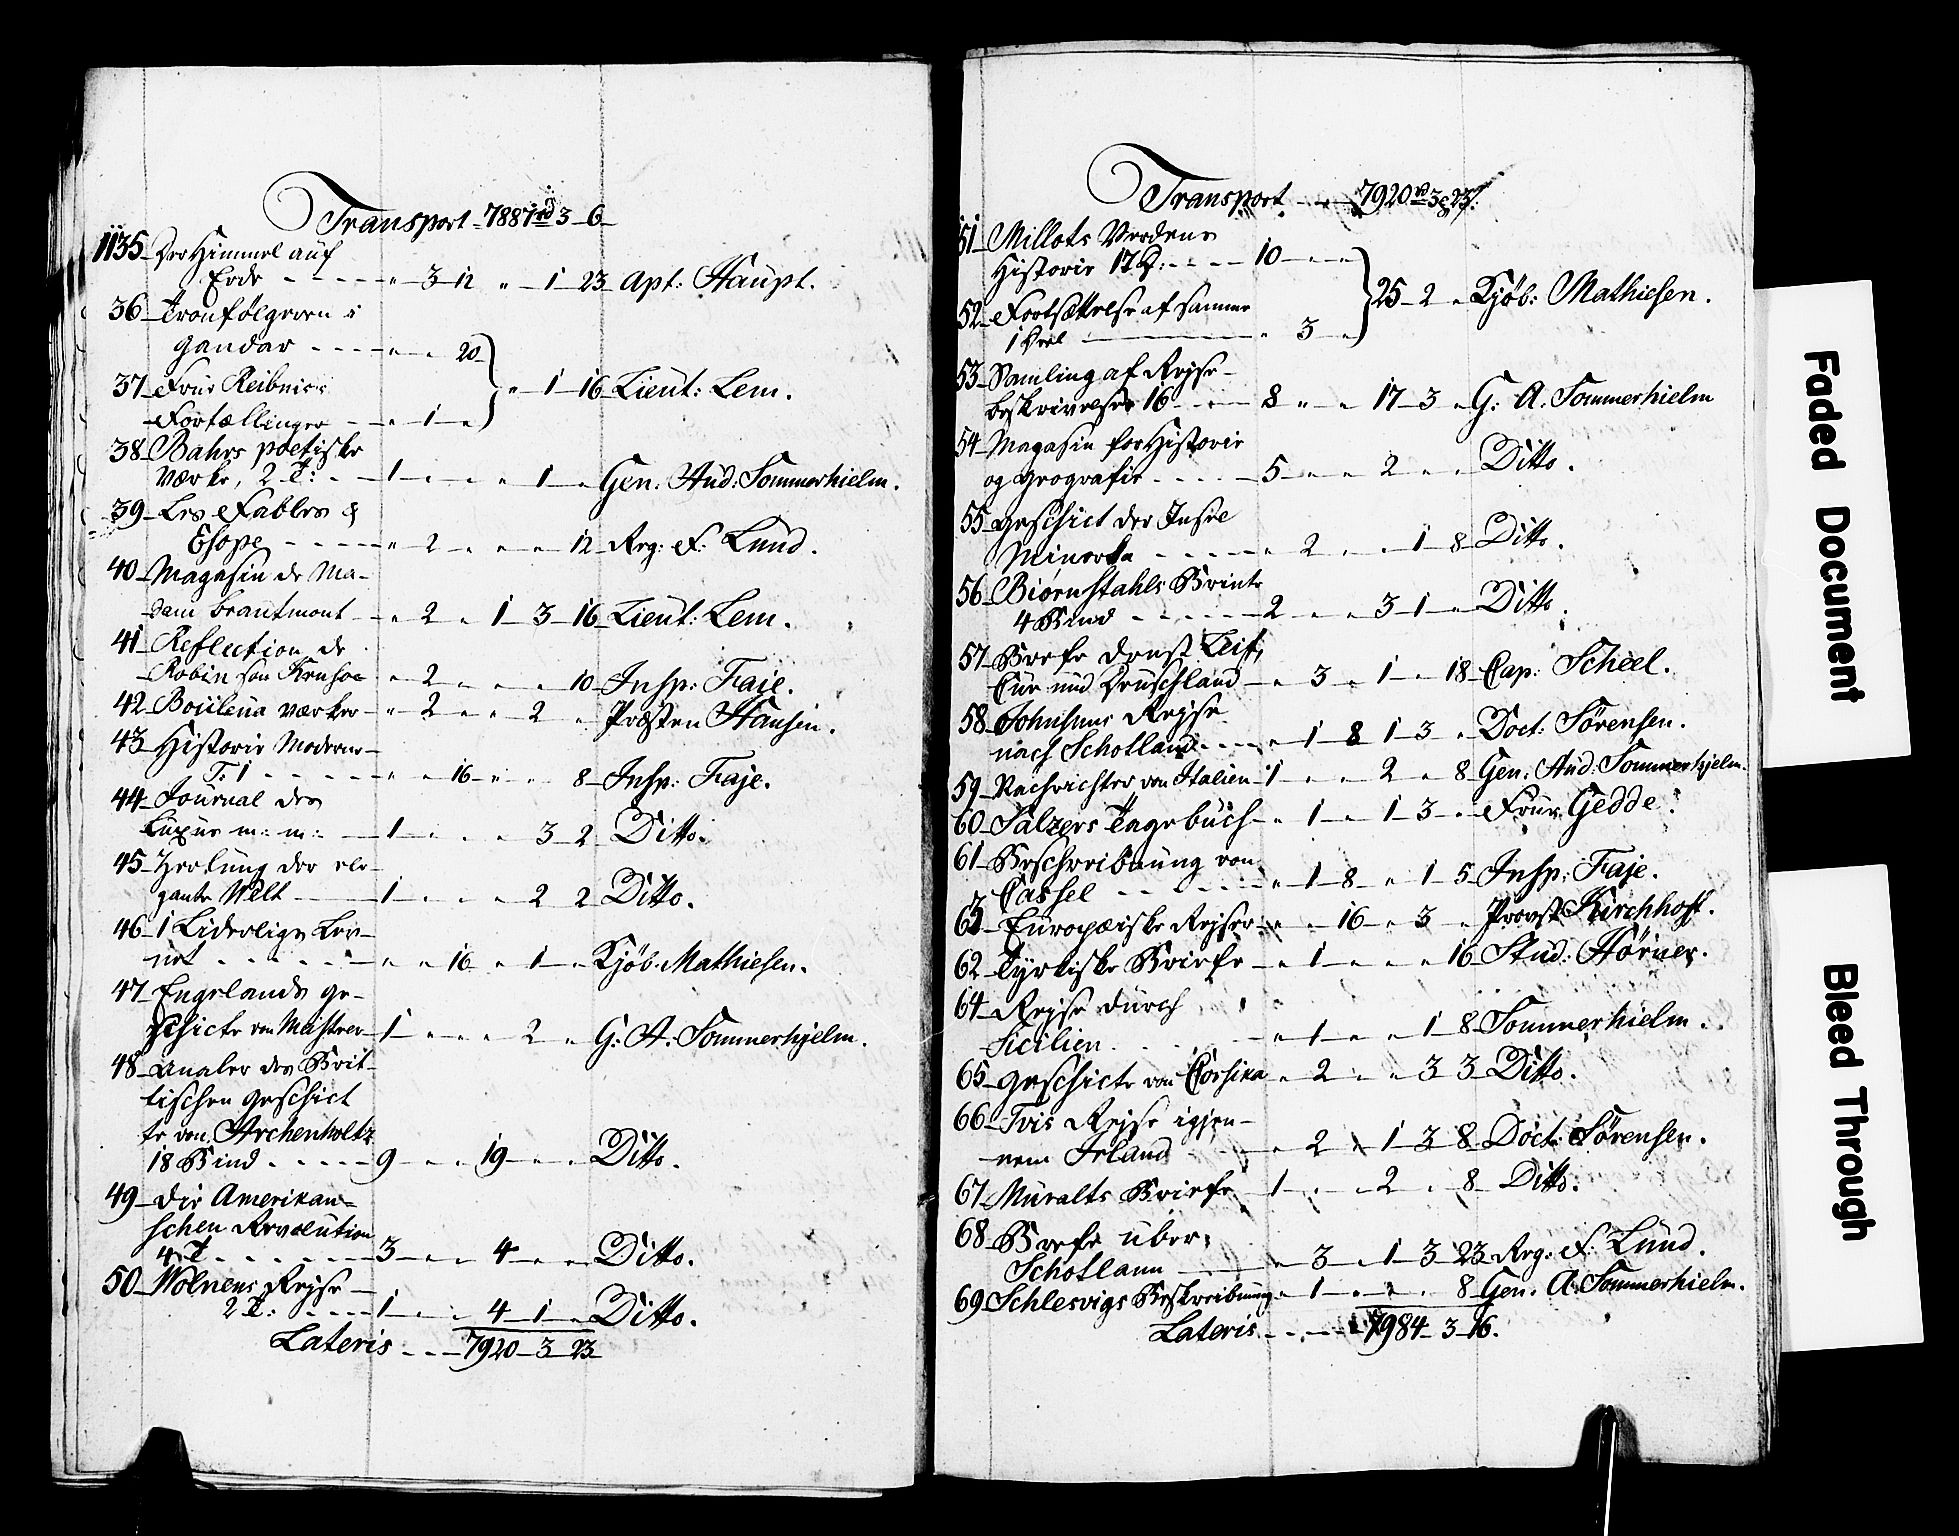 Transport - 7887 rd 3 - 6 -
1135 - Der Himmel auf
Erde - - - - - " - 3 - 12 " - 1 - 23 - Apt: Haupt.
36 - Tronfølgeren i
Gandar - - - - " - " 20 -
37 - Frue Reibnitz
Fortællinger - - " - 1 - " - } " - 1 - 16 - Lieut: Lem.
38 - Bahrs poetiske
Værker, 2 T: - - 1 - " - " - " 1 - " Gen: Aud: Sommerhielm.
39 - Les Fables d
Esope - - - - - " - 2 - " - " - " - 12 - Reg: F: Lund.
40 - Magasin de Ma-
dam beautmont - - " - 2 - " 1 - 3 - 16 - Lieut: Lem.
41 - Reflection de
Robinson Krusoe - " - 2 - " - " - " - 10 - Insp: Faje.
42 - Boileua værker - - " - 2 - " - " 2 - " Præsten Hansen.
43 - Historie Moderne -
T: 1 - - - - - - " - " 16 - " - " 8 - Insp: Faje.
44 - Journal des
Luxus m: m: - - 1 - " - " - " 3 2 Ditto.
45 - Zeitung der ele-
gante Welt - - 1 - " - " - " 2 2 Ditto.
46 - 1 Liderlige Lev-
net - - - - - - " - " 16 - " 1 - " Kjøb: Mathiesen.
47 - Engelands ge-
schicte von Meistrer - 1 - " - " - " 2 - " G: A: Sommerhjelm.
48 - Analer des Brit-
tischen geschict
te von Archenholtz
18 Bind - - - - - 9 - " - " 19 - " - " Ditto.
49 - Die Amerikan-
schen Revolution
4 T - - - - - - 3 - " - " 4 - " - " Ditto.
50 - Wolnens Rejse -
2 T: - - - - 1 - " - " 4 - 1 - " Ditto.
Lateris - - - 7920 - 3 - 23
Transport - - - 7920 rd 3 & 23 /:
51 - Millots Verdens
Historie 17 T: - - - 10 - " - "
52 - Fortsættelse af samme
1 Deel - - - " 3 - " } 25 - 2 - " Kjøb: Mathiesen.
53 - Samling af Rejse -
beskrivelser 16 - - - 8 " - " 17 - 3 - " G: A: Sommerhielm
54 - Magasin for Historie
og Geografie - - - - 5 - " - " 2 - " - " Ditto.
55 - Geschict der Insel
Minorka - - - - - " 2 - " - " 1 - 8 - Ditto.
56 - Biørnstahls Breve
4 Bind - - - - - - 2 - " - " 3 - 1 - " Ditto.
57 - Brefe
Cur und Deuschland - " 3 - " 1 - " 18 - Cap: Scheel.
58 - Johnsens Rejse
nach Schotland - - - " - 1 - 8 1 - 3 - " Doct: Sørensen.
59 - Nachrichter von Italien - 1 - " - " 2 - " 8 Gen: Aud: Sommerhjelm.
60 - Salzers Tagebuch - " - 1 - " 1 - 3 - " Frue Gedde.
61 - Beschreibnung von
Cassel - - - - - - " - 1 - 8 - " 1 - 5 - Insp: Faje.
62 - Europæiske Rejser - " - " 16 - " 3 - " Provst Kirchhoff.
62 Tyrkiske Briefe - " - 1 - " - " - " 16 Stud: Hörner.
64 - Rejse durch
Sicilien - - - - " - 1 - " - " 1 - 8 Sommerhielm.
65 - Geschicte von Corsika - " 2 - " - " 3 3 Ditto.
66 - Tvis Rejse igjen-
nem Irland - - " 2 - " 1 - 3 8 Doct: Sørensen.
67 - Muralts Briefe - 1 - " - " 2 - " 8 - Ditto.
68 - Brefe über
Schotlann - - - " - 3 - " 1 - 3 - 23 Reg: F: Lund.
69 Schlesvigs Beskreibnung - " 1 - " - " - " 8 Gen: A: Sommerhielm.
Lateris - - - 7984 - 3 - 16.
Faded Document
Bleed Through